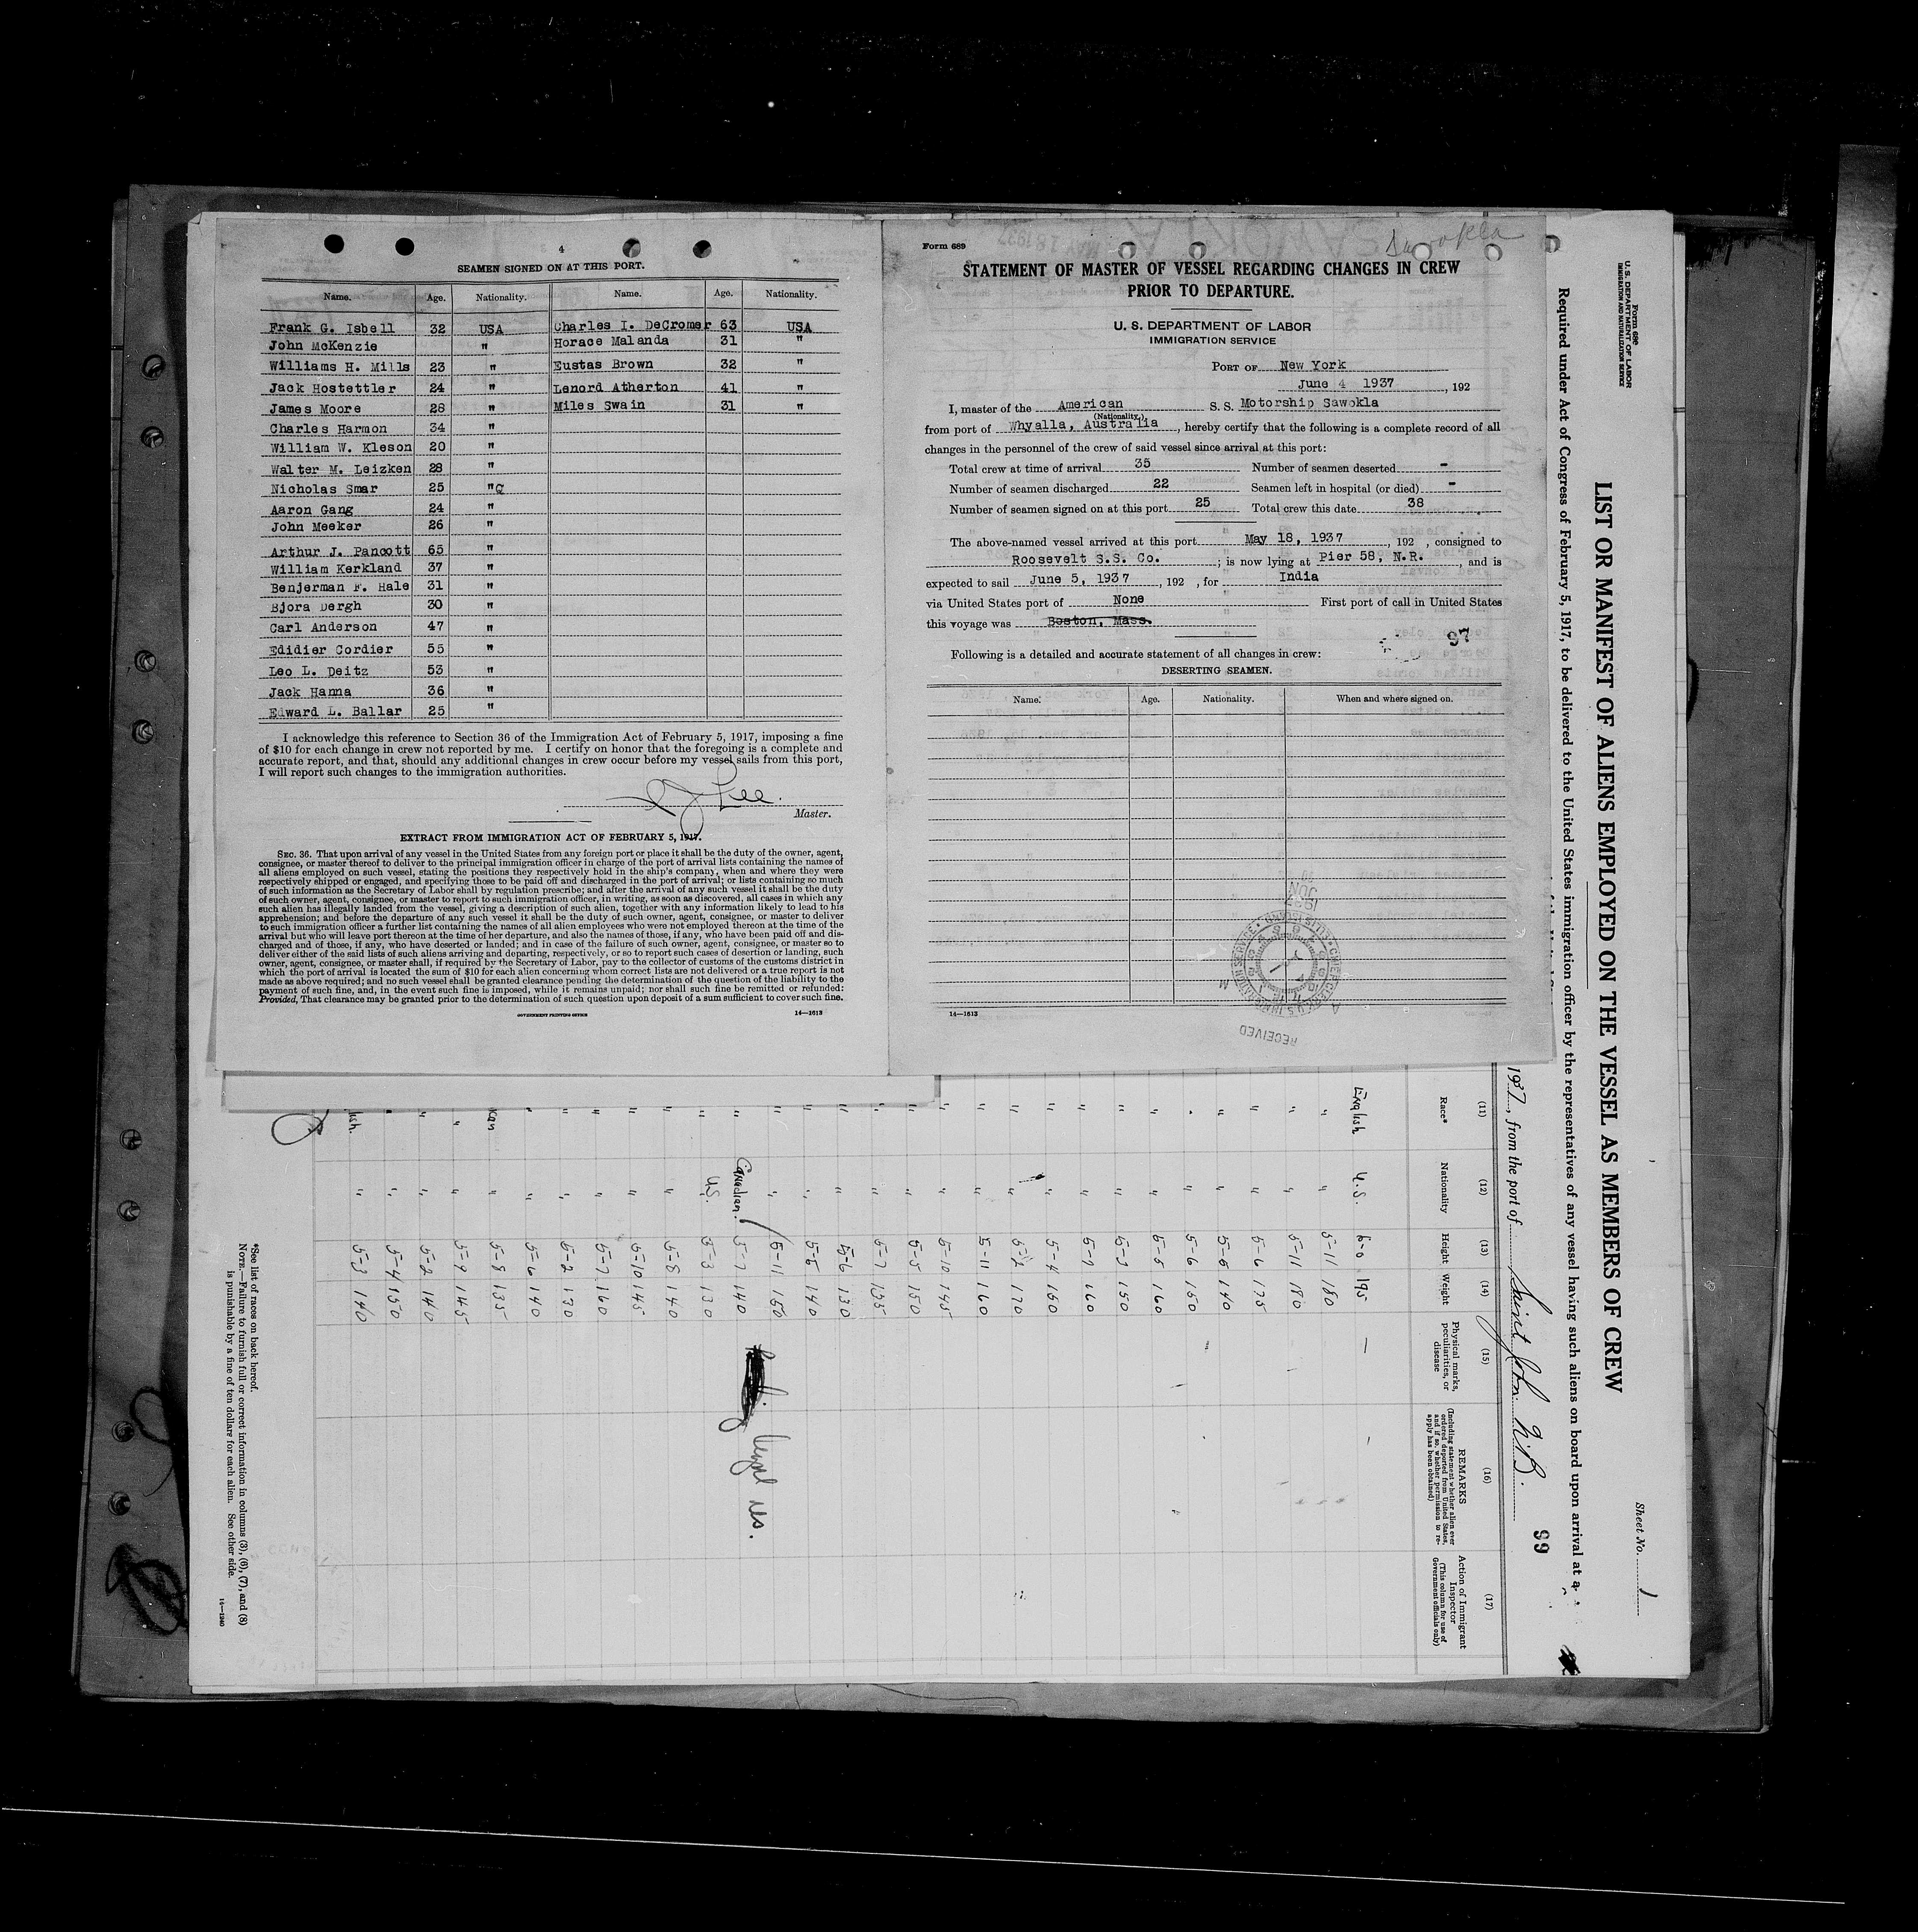 4
SEAMEN SIGNED ON AT THIS PORT.
Name. Age. Nationality. Name. Age. Nationality.
Frank G. Isbell 32 USA Charles I. DeCromer 63 USA
John McKenzie " Horace Malanda 31 "
Williams H. Mills 23 " Eustas Brown 32 "
Jack Hostettler 24 " Lenord Atherton 41 "
James Moore 28 " Miles Swain 31 "
Charles Harmon 34 "
William W. Kleson 20 "
Walter M. Leizken 28 "
Nicholas Smar 25 "
Aaron Gang 24 "
John Meeker 26 "
Arthur J. Pancott 65 "
William Kerkland 37 "
Benjerman F. Hale 31 "
Bjora Dergh 30 "
Carl Anderson 47 "
Edidier Cordier 55 "
Leo L. Deitz 53 "
Jack Hanna 36 "
Edward L. Ballar 25 "
I acknowledge this reference to Section 36 of the Immigration Act of February 5, 1917, imposing a fine
of $10 for each change in crew not reported by me. I certify on honor that the foregoing is a complete and
accurate report, and that, should any additional changes in crew occur before my vessel sails from this port,
I will report such changes to the immigration authorities.
Lee.
Master.
EXTRACT FROM IMMIGRATION ACT OF FEBRUARY 5, 1917.
SEC. 36. That upon arrival of any vessel in the United States from any foreign port or place it shall be the duty of the owner, agent,
consignee, or master thereof to deliver to the principal immigration officer in charge of the port of arrival lists containing the names of
all aliens employed on such vessel, stating the positions they respectively hold in the ship's company, when and where they were
respectively shipped or engaged, and specifying those to be paid off and discharged in the port of arrival; or lists containing so much
of such information as the Secretary of Labor shall by regulation prescribe; and after the arrival of any such vessel it shall be the duty
of such owner, agent, consignee, or master to report to such immigration officer, in writing, as soon as discovered, all cases in which any
such alien has illegally landed from the vessel, giving a description of such alien, together with any information likely to lead to his
apprehension; and before the departure of any such vessel it shall be the duty of such owner, agent, consignee, or master to deliver
to such immigration officer a further list containing the names of all alien employees who were not employed thereon at the time of the
arrival but who will leave port thereon at the time of her departure, and also the names of those, if any, who have been paid off and dis-
charged and of those, if any, who have deserted or landed; and in case of the failure of such owner, agent, consignee, or master so to
deliver either of the said lists of such aliens arriving and departing, respectively, or so to report such cases of desertion or landing, such
owner, agent, consignee, or master shall, if required by the Secretary of Labor, pay to the collector of customs of the customs district in
which the port of arrival is located the sum of $10 for each alien concerning whom correct lists are not delivered or a true report is not
made as above required; and no such vessel shall be granted clearance pending the determination of the question of the liability to the
payment of such fine, and, in the event such fine is imposed, while it remains unpaid; nor shall such fine be remitted or refunded:
Provided, That clearance may be granted prior to the determination of such question upon deposit of a sum sufficient to cover such fine.
GOVERNMENT PRINTING OFFICE 14—1613
Form 689
Sawokla
STATEMENT OF MASTER OF VESSEL REGARDING CHANGES IN CREW
PRIOR TO DEPARTURE.
U. S. DEPARTMENT OF LABOR
IMMIGRATION SERVICE
PORT OF New York
June 4 1937, 192
I, master of the American S. S. Motorship Sawokla
(Nationality.)
from port of Whyalla, Australia, hereby certify that the following is a complete record of all
changes in the personnel of the crew of said vessel since arrival at this port:
Total crew at time of arrival 35 Number of seamen deserted -
Number of seamen discharged 22 Seamen left in hospital (or died) -
Number of seamen signed on at this port 25 Total crew this date 38
The above-named vessel arrived at this port May 18, 1937, 192 , consigned to
Roosevelt S.S. Co. ; is now lying at Pier 58, N.R. , and is
expected to sail June 5, 1937, 192 , for India
via United States port of None First port of call in United States
this voyage was Boston, Mass.
97
Following is a detailed and accurate statement of all changes in crew:
DESERTING SEAMEN.
Name. Age. Nationality. When and where signed on.
1937 JUN
CHIEF CLERK U.S. IMMIGRATION SERVICE
RECEIVED
14—1613
Form 686
U. S. DEPARTMENT OF LABOR
IMMIGRATION AND NATURALIZATION SERVICE
Sheet No. 1
LIST OR MANIFEST OF ALIENS EMPLOYED ON THE VESSEL AS MEMBERS OF CREW
Required under Act of Congress of February 5, 1917, to be delivered to the United States immigration officer by the representatives of any vessel having such aliens on board upon arrival at a
1937, from the port of Saint John N.B.
99
(11) (12) (13) (14) (15) (16) (17)
Race* Nationality Height Weight Physical marks, peculiarities, or disease REMARKS (Including statement whether alien ever ordered deported from United States, and if so, whether permission to re-apply has been obtained) Action of Immigrant Inspector (This column for use of Government officials only)
English U.S. 6-0 195 —
" " 5-11 180
" " 5-11 180
" " 5-6 175
" " 5-5 140
" " 5-6 150
" " 5-5 160
" " 5-3 150
" " 5-9 160
" " 5-4 160
" " 170
" " 5-11 160
" " 5-10 145
" " 5-5 150
" " 5-7 135
" " 5-6 130
" " 5-5 140
" " 5-11 150
" Canadian. 5-7 140 legal res.
" U.S. 5-3 130
" " 5-8 140
" " 5-10 145
" " 5-7 160
" " 5-2 130
" " 5-6 140
" 5-8 135
" " 5-9 145
" " 5-2 140
" " 5-4 150
" 5-3 140
*See list of races on back hereof.
NOTE.—Failure to furnish full or correct information in columns (3), (6), (7), and (8)
is punishable by a fine of ten dollars for each alien. See other side.
14—1240